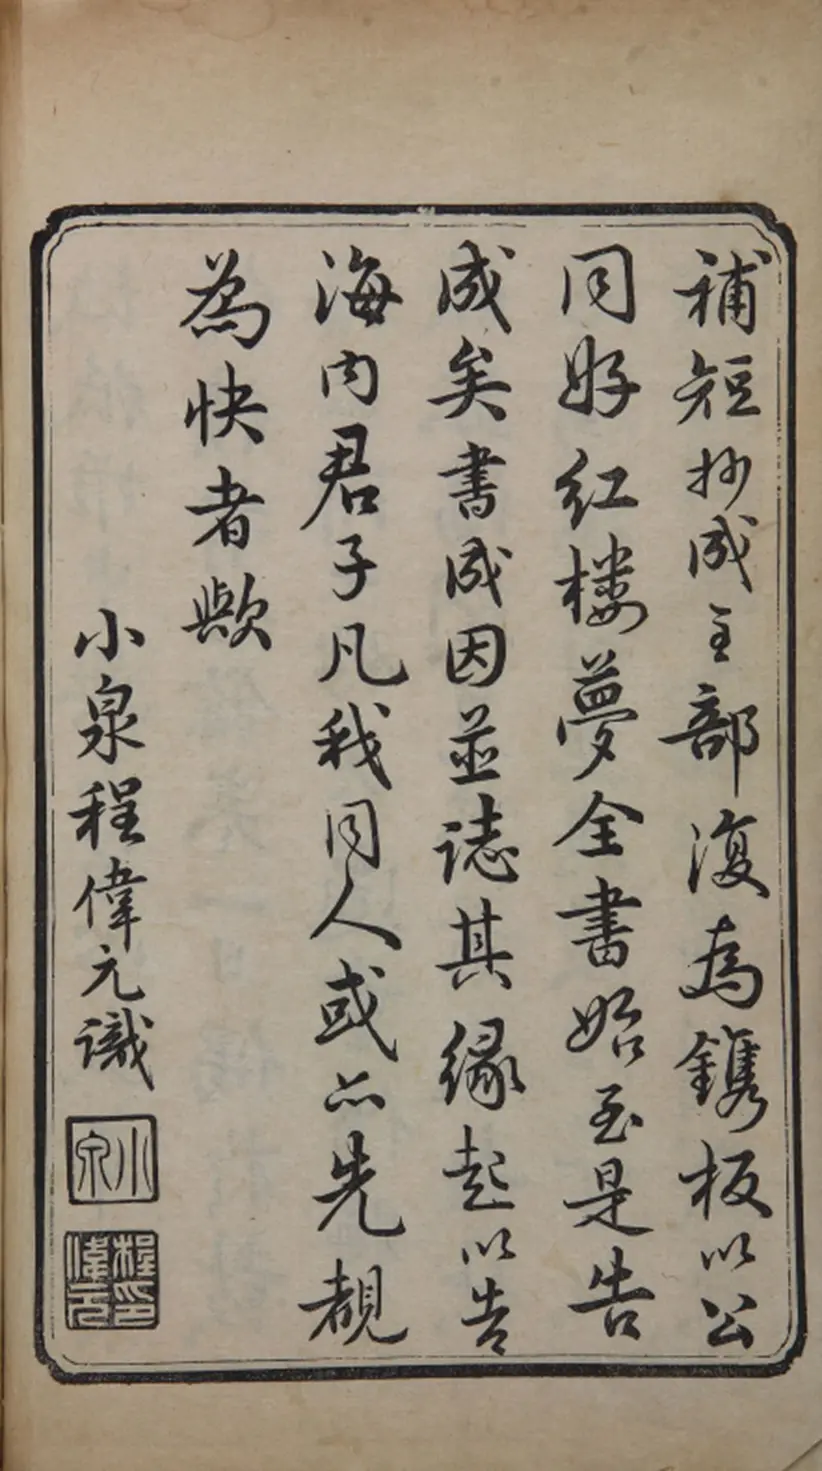 補短抄成全部復為鐫板以公
同好紅樓夢全書始至是告
成矣書成因並誌其緣起以告
海内君子凡我同人或亦先覩
為快者歟
小泉程偉元識
小泉
程印偉元